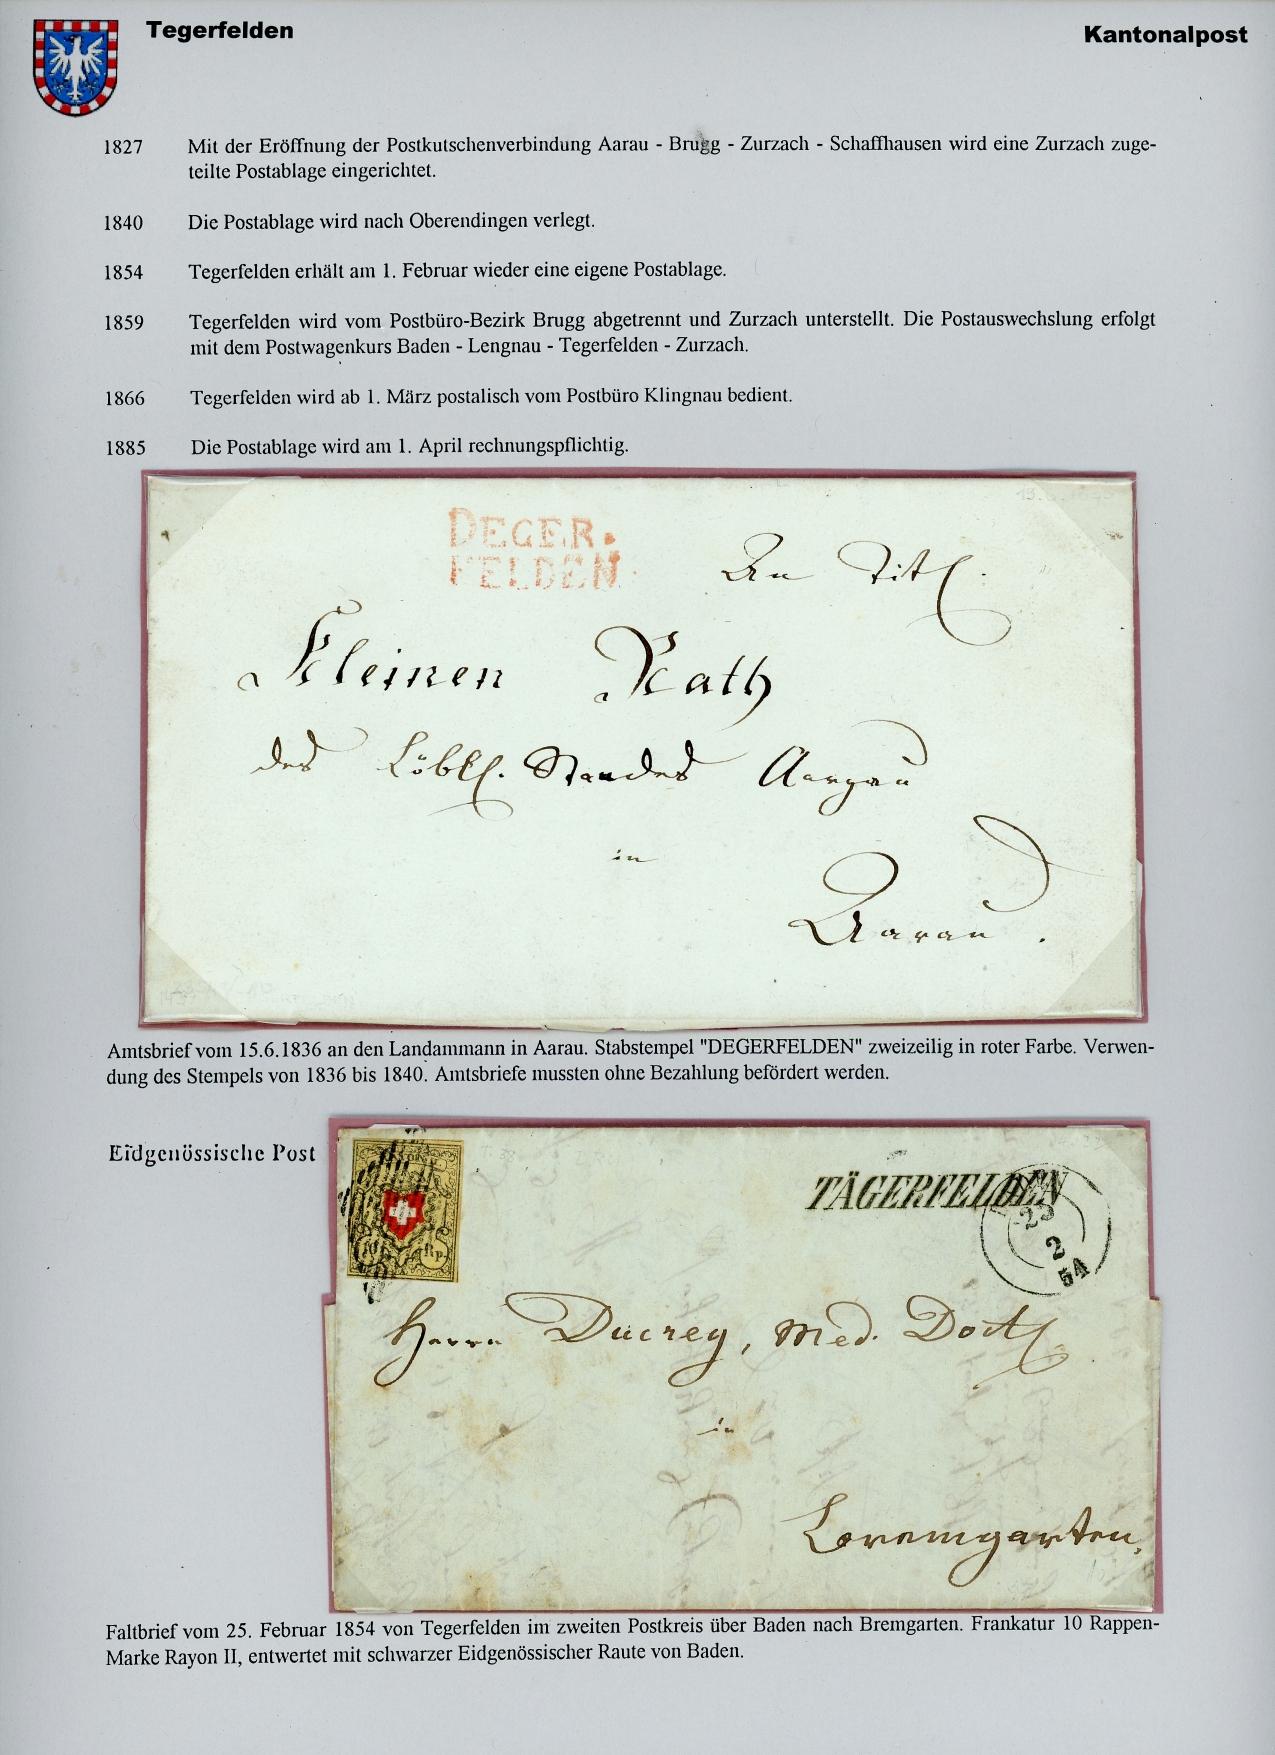 Tegerfelden
Kantonalpost
1827 Mit der Eröffnung der Postkutschenverbindung Aarau - Brugg - Zurzach - Schaffhausen wird eine Zurzach zuge-
teilte Postablage eingerichtet.
1840 Die Postablage wird nach Oberendingen verlegt.
1854 Tegerfelden erhält am 1. Februar wieder eine eigene Postablage.
1859 Tegerfelden wird vom Postbüro-Bezirk Brugg abgetrennt und Zurzach unterstellt. Die Postauswechslung erfolgt
mit dem Postwagenkurs Baden - Lengnau - Tegerfelden - Zurzach.
1866 Tegerfelden wird ab 1. März postalisch vom Postbüro Klingnau bedient.
1885 Die Postablage wird am 1. April rechnungspflichtig.
DEGER.
FELDEN
An Titl.
Kleinen Rath
des Löbl. Standes Aargau
in
Aarau.
Amtsbrief vom 15.6.1836 an den Landammann in Aarau. Stabstempel "DEGERFELDEN" zweizeilig in roter Farbe. Verwen-
dung des Stempels von 1836 bis 1840. Amtsbriefe mussten ohne Bezahlung befördert werden.
Eidgenössische Post
10 Rp.
TÄGERFELDEN
2
54
Herrn Ducrey, Med. Doct
in
Bremgarten.
Faltbrief vom 25. Februar 1854 von Tegerfelden im zweiten Postkreis über Baden nach Bremgarten. Frankatur 10 Rappen-
Marke Rayon II, entwertet mit schwarzer Eidgenössischer Raute von Baden.